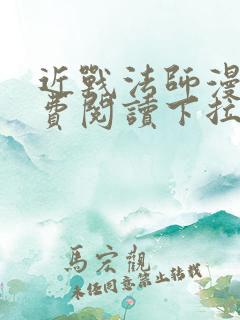 近戰法師漫
費閱讀下拉
馬宏觀
未任同意禁止轉載